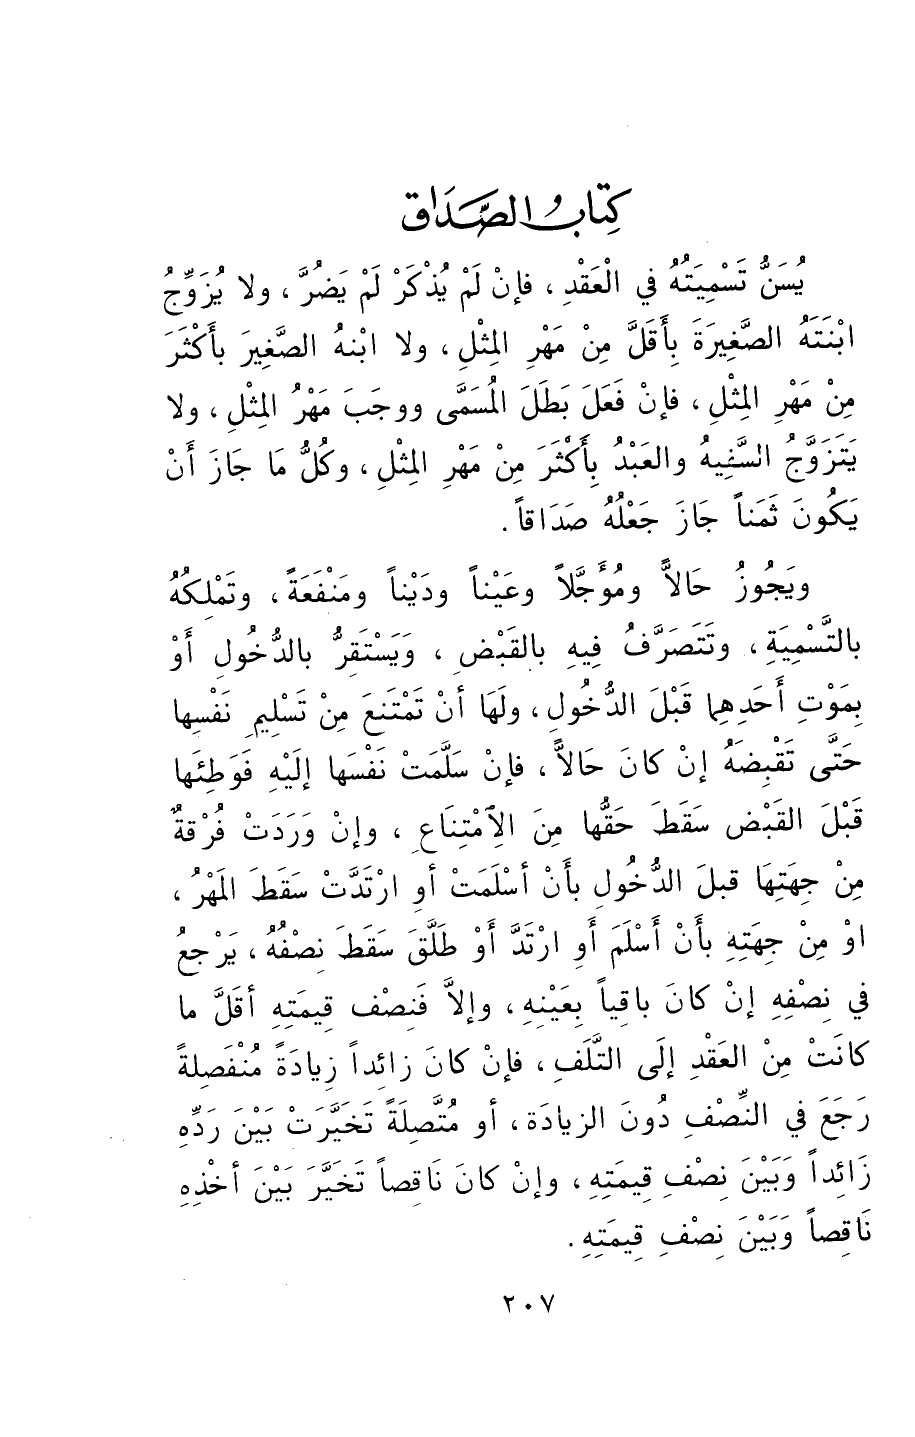 كِتَابُ الصَّدَاق
يُسَنُّ تَسْمِيَتُهُ في الْعَقْدِ ، فإنْ لَمْ يُذْكَرْ لَمْ يَضُرَّ ، ولا يُزَوِّجُ
ابْنَتَهُ الصَّغِيرَةَ بِأَقَلَّ مِنْ مَهْرِ المِثْلِ ، ولا ابْنهُ الصَّغِيرَ بأَكْثَرَ
مِنْ مَهْرِ المِثْلِ ، فإنْ فَعَلَ بَطَلَ المُسَمَّى ووجَبَ مَهْرُ المِثْلِ ، ولا
يَتَزَوَّجُ السَّفِيهُ والعَبْدُ بِأَكْثَرَ مِنْ مَهْرِ المِثْلِ ، وكُلُّ مَا جَازَ أَنْ
يَكُونَ ثَمَناً جَازَ جَعْلُهُ صَدَاقاً .
ويَجُوزُ حَالاًّ ومُؤَجَّلاً وعَيْناً ودَيْناً ومَنْفَعَةً ، وتَمْلِكُهُ
بالتَّسْمِيَةِ ، وتَتَصَرَّفُ فِيهِ بالقَبْضِ ، وَيَسْتَقِرُّ بالدُّخُولِ أَوْ
بِمَوْتِ أَحَدِهِما قَبْلَ الدُّخُولِ ، ولَهَا أنْ تَمْتَنعَ مِنْ تَسْلِيمِ نَفْسِها
حَتَّى تَقْبِضَهُ إنْ كانَ حَالاًّ ، فإنْ سَلَّمَتْ نَفْسَها إلَيْهِ فَوَطِئَها
قَبْلَ القَبْض سَقَطَ حَقُّها مِنَ الإمْتِنَاعِ ، وإنْ وَرَدَتْ فُرْقَةٌ
مِنْ جِهَتِهَا قبلَ الدُّخُولِ بأَنْ أسْلَمَتْ أو ارْتَدَّتْ سَقَطَ المَهْرُ ،
اوْ مِنْ جِهَتِهِ بأَنْ أَسْلَمَ أَوِ ارْتَدَّ أَوْ طَلَّقَ سَقَطَ نِصْفُهُ ، يَرْجعُ
في نِصْفِهِ إنْ كانَ باقياً بِعَيْنِهِ ، وإلاَّ فَنِصْف قِيمَتِهِ أقَلَّ ما
كانَتْ مِنْ العَقْدِ إلَى التَّلَفِ ، فإنْ كانَ زائِداً زيادَةً مُنْفَصِلةً
رَجَعَ في النِّصْفِ دُونَ الزيادَة ، أو مُتَّصِلَةً تَخَيَّرَتْ بَيْنَ رَدِّهِ
زَائِداً وَبَيْنَ نِصْفِ قِيمَتِهِ ، وإنْ كانَ نَاقِصاً تَخَيَّرَ بَيْنَ أخْذِهِ
نَاقِصاً وَبَيْنَ نِصْفِ قِيمَتِهِ .
٢٠٧